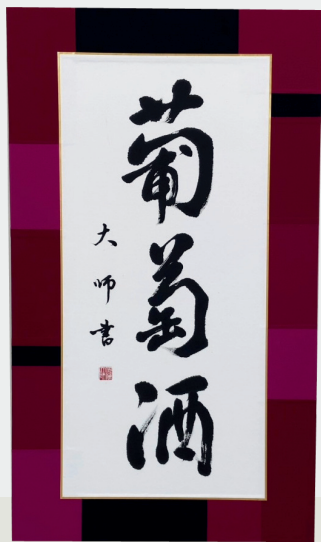 葡萄酒
大师书